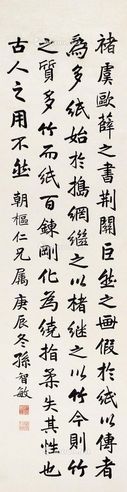 褚虞歐薛之書荆關巨然之畫假於紙以傳者
為多紙始於擣網繼之以楮繼之以竹今則竹
之質多竹而紙百鍊剛化為繞指柔失其性也
古人之用不然 朝樞仁兄属庚辰冬孫智敏